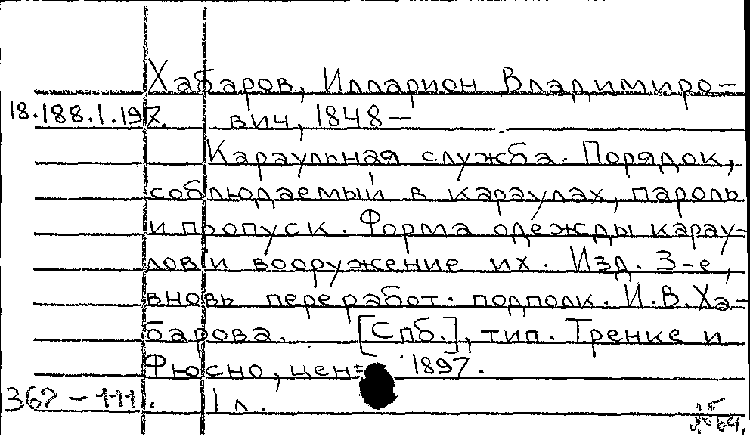 Хабаров, Илларион Владимиро-
18.188.1.197. вич, 1848-
Караульная служба. Порядок,
соблюдаемый в караулах, пароль
и пропуск. Форма одежды карау-
лов и вооружение их. Изд. 3-е,
вновь переработ. подполк. И.В.Ха-
барова. [Спб.], тип. Тренке и
Фюсно, ценз. 1897.
367-111. 1 л.